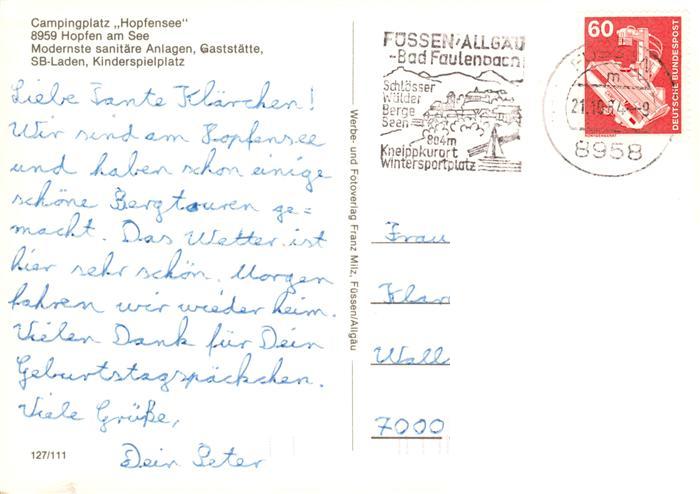 Campingplatz „Hopfensee"
8959 Hopfen am See
Modernste sanitäre Anlagen, Gaststätte,
SB-Laden, Kinderspielplatz
Liebe Tante Klärchen!
Wir sind am Hopfensee
und haben schon einige
schöne Bergtouren ge=
macht. Das Wetter ist
hier sehr schön. Morgen
fahren wir wieder heim.
Vielen Dank für Dein
Geburtstagspäckchen.
Viele Grüße,
Dein Peter
127/111
Werbe- und Fotoverlag Franz Milz, Füssen/Allgäu
FÜSSEN/ALLGÄU
-Bad Faulenbach
Schlösser
Wälder
Berge
Seen
804m
Kneippkurort
Wintersportplatz
60
DEUTSCHE BUNDESPOST
8958
Frau
Klar
Wall
7000